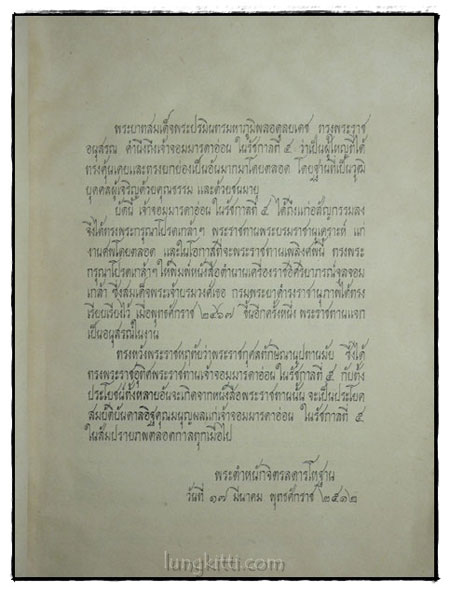 พระบาทสมเด็จพระปรมินทรมหาภูมิพลอดุลยเดช ทรงพระราช
อนุสรณ์ คำนึงถึงเจ้าจอมมารดาอ่อน ในรัชกาลที่ ๕ ว่าเป็นผู้ใหญ่ที่ได้
ทรงคุ้นเคยและทรงยกย่องเป็นอันมากมาโดยตลอด โดยฐานที่เป็นวุฒิ
บุคคลผู้เจริญด้วยคุณธรรม และด้วยชนมายุ
บัดนี้ เจ้าจอมมารดาอ่อน ในรัชกาลที่ ๕ ได้ถึงแก่อสัญกรรมลง
จึงได้ทรงพระกรุณาโปรดเกล้าฯ พระราชทานพระบรมราชานุเคราะห์ แก่
งานศพโดยตลอด และในโอกาสที่จะพระราชทานเพลิงศพนี้ ทรงพระ
กรุณาโปรดเกล้าฯให้พิมพ์หนังสือตำนานเครื่องราชอิศริยาภรณ์จุลจอม
เกล้า ซึ่งสมเด็จพระเจ้าบรมวงศ์เธอ กรมพระยาดำรงราชานุภาพได้ทรง
เรียบเรียงไว้ เมื่อพุทธศักราช ๒๔๖๗ ขึ้นอีกครั้งหนึ่ง พระราชทานแจก
เป็นอนุสรณ์ในงาน
ทรงหวังพระราชหฤทัยว่าพระราชกุศลทักษิณานุปทานมัย ซึ่งได้
ทรงพระราชอุทิศพระราชทานเจ้าจอมมารดาอ่อน ในรัชกาลที่ ๕ กับทั้ง
ประโยชน์ทั้งหลายอันจะเกิดจากหนังสือพระราชทานนั้น จะเป็นประโยค
สมบัติบันดาลอิฐคุณมนุญผลแก่เจ้าจอมมารดาอ่อน ในรัชกาลที่ ๕
ในสัมปรายภพตลอดกาลทุกเมื่อไป
พระตำหนักจิตรลดารโหฐาน
วันที่ ๑๗ มีนาคม พุทธศักราช ๒๕๑๒
lungkitti.com